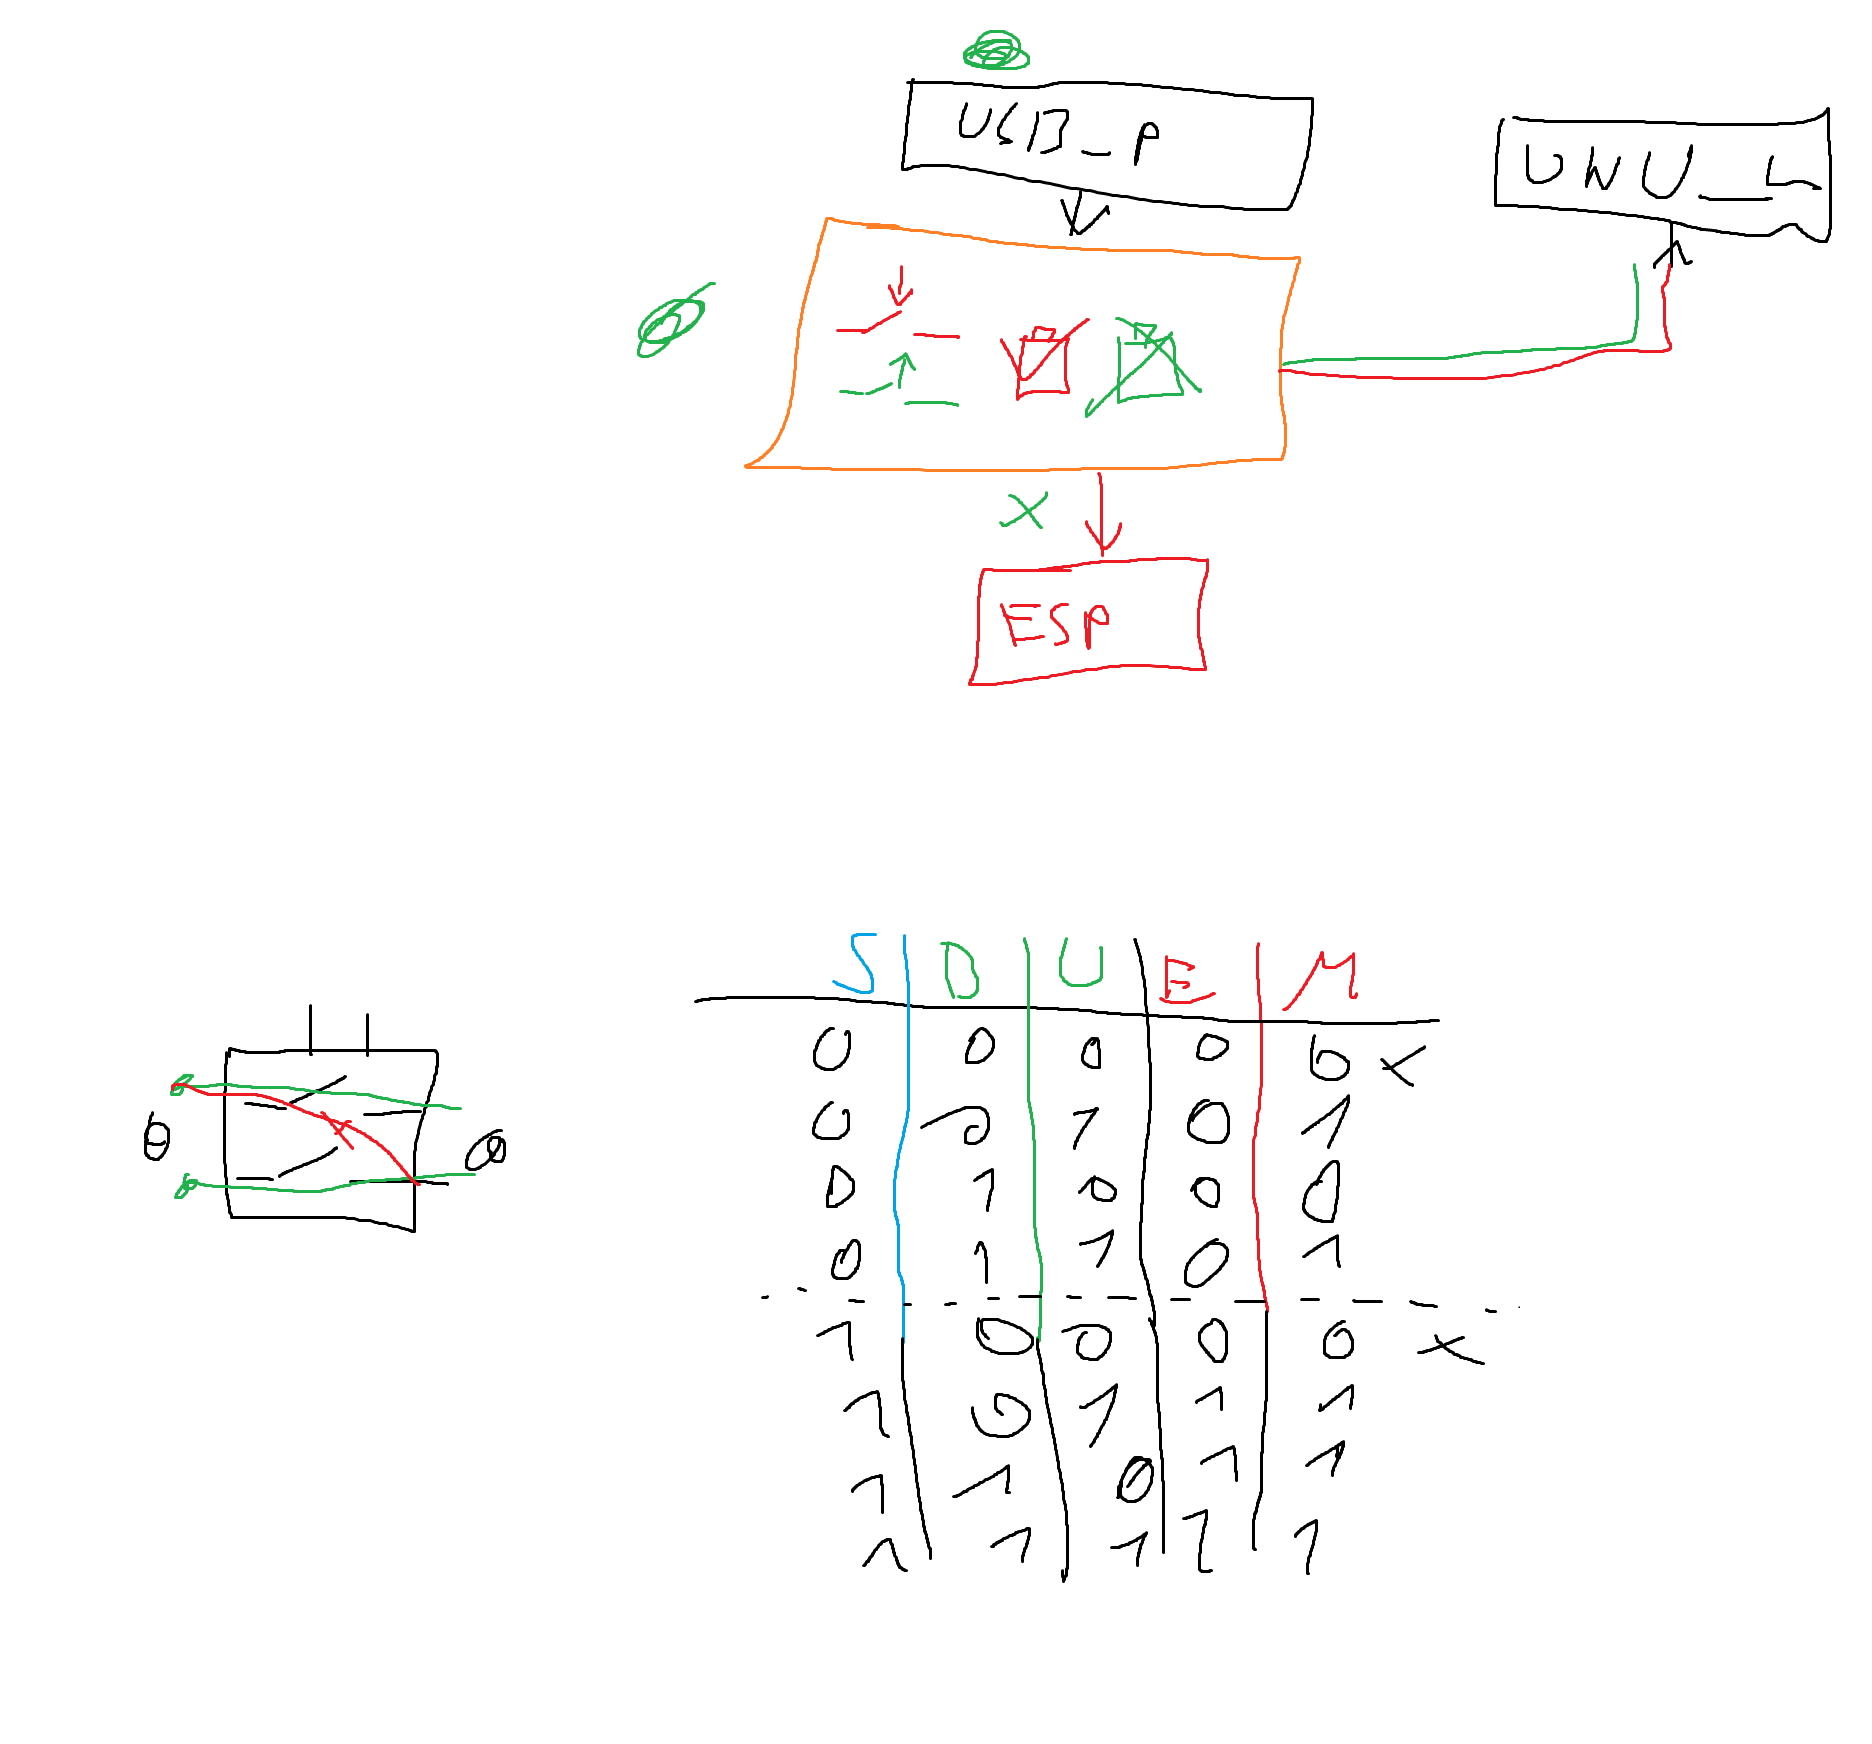 USB_P
ESP
X
S B U E M
0 0 0 0 0 X
0 0 1 0 1
0 1 0 0 0
0 1 1 0 1
1 0 0 0 0 X
1 0 1 1 1
1 1 0 1 1
1 1 1 1 1